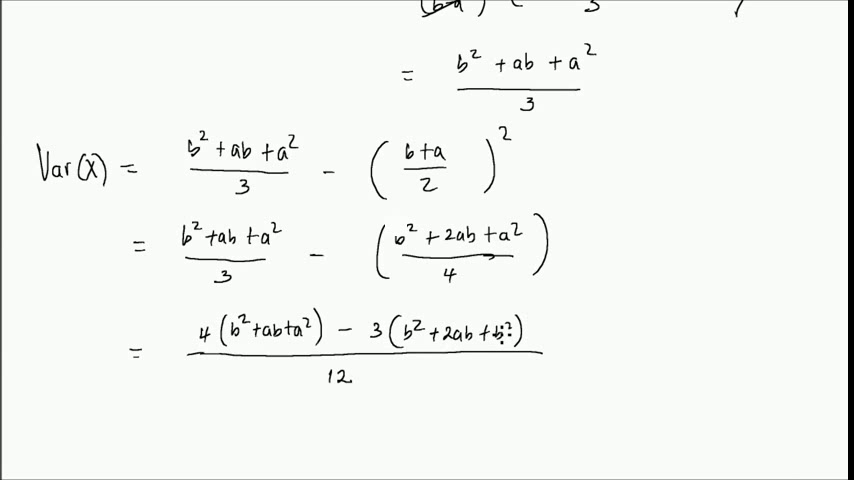 (b-a) ( 3
= b² + ab + a² / 3
Var(X) = b² + ab + a² / 3 - ( b+a / 2 )²
= b² + ab + a² / 3 - ( b² + 2ab + a² / 4 )
= 4(b² + ab + a²) - 3(b² + 2ab + b²) / 12